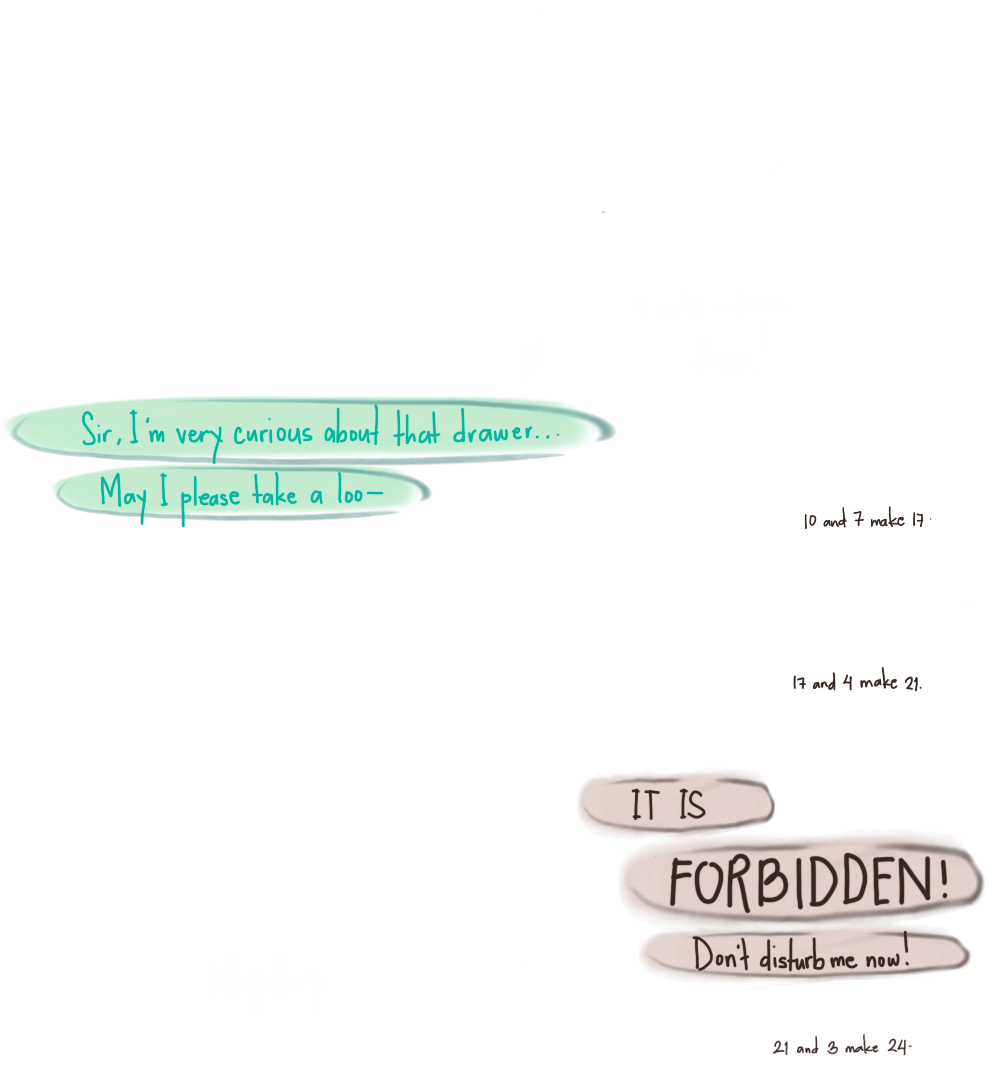 Sir, I'm very curious about that drawer...
May I please take a loo—
10 and 7 make 17.
17 and 4 make 21.
IT IS
FORBIDDEN!
Don't disturb me now!
21 and 3 make 24.